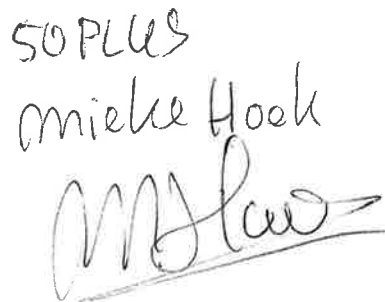 50PLUS
Mieke Hoek